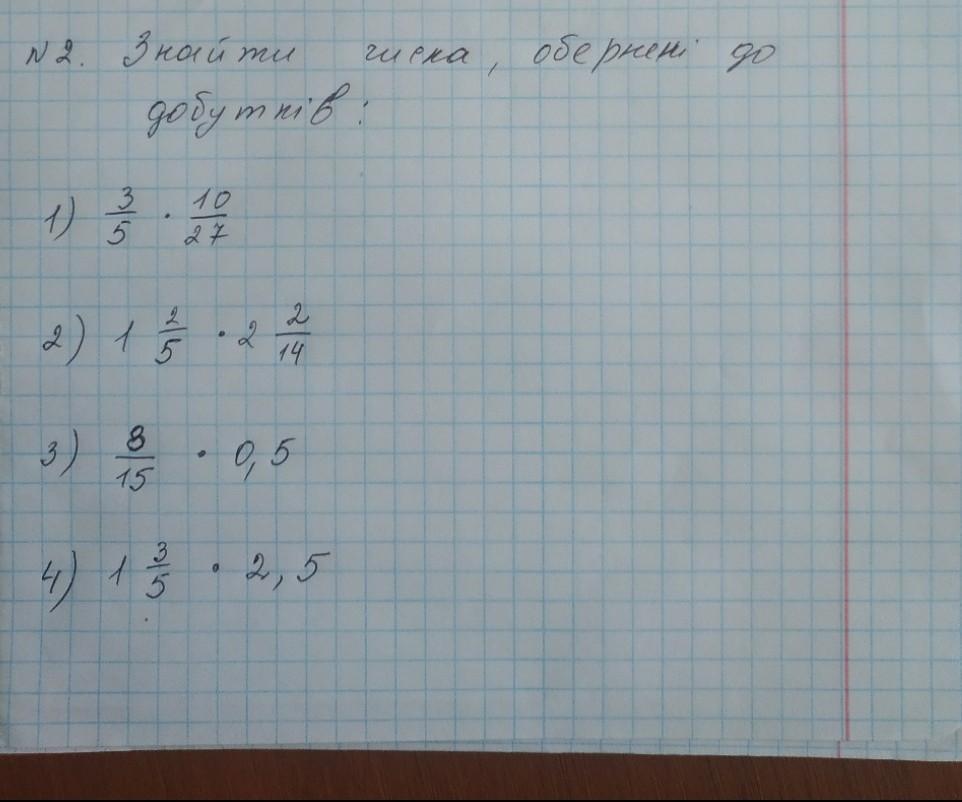 N2. Знайти числа, обернені до
добутків:
1) 3/5 · 10/27
2) 1 2/5 · 2 2/14
3) 8/15 · 0,5
4) 1 3/5 · 2,5